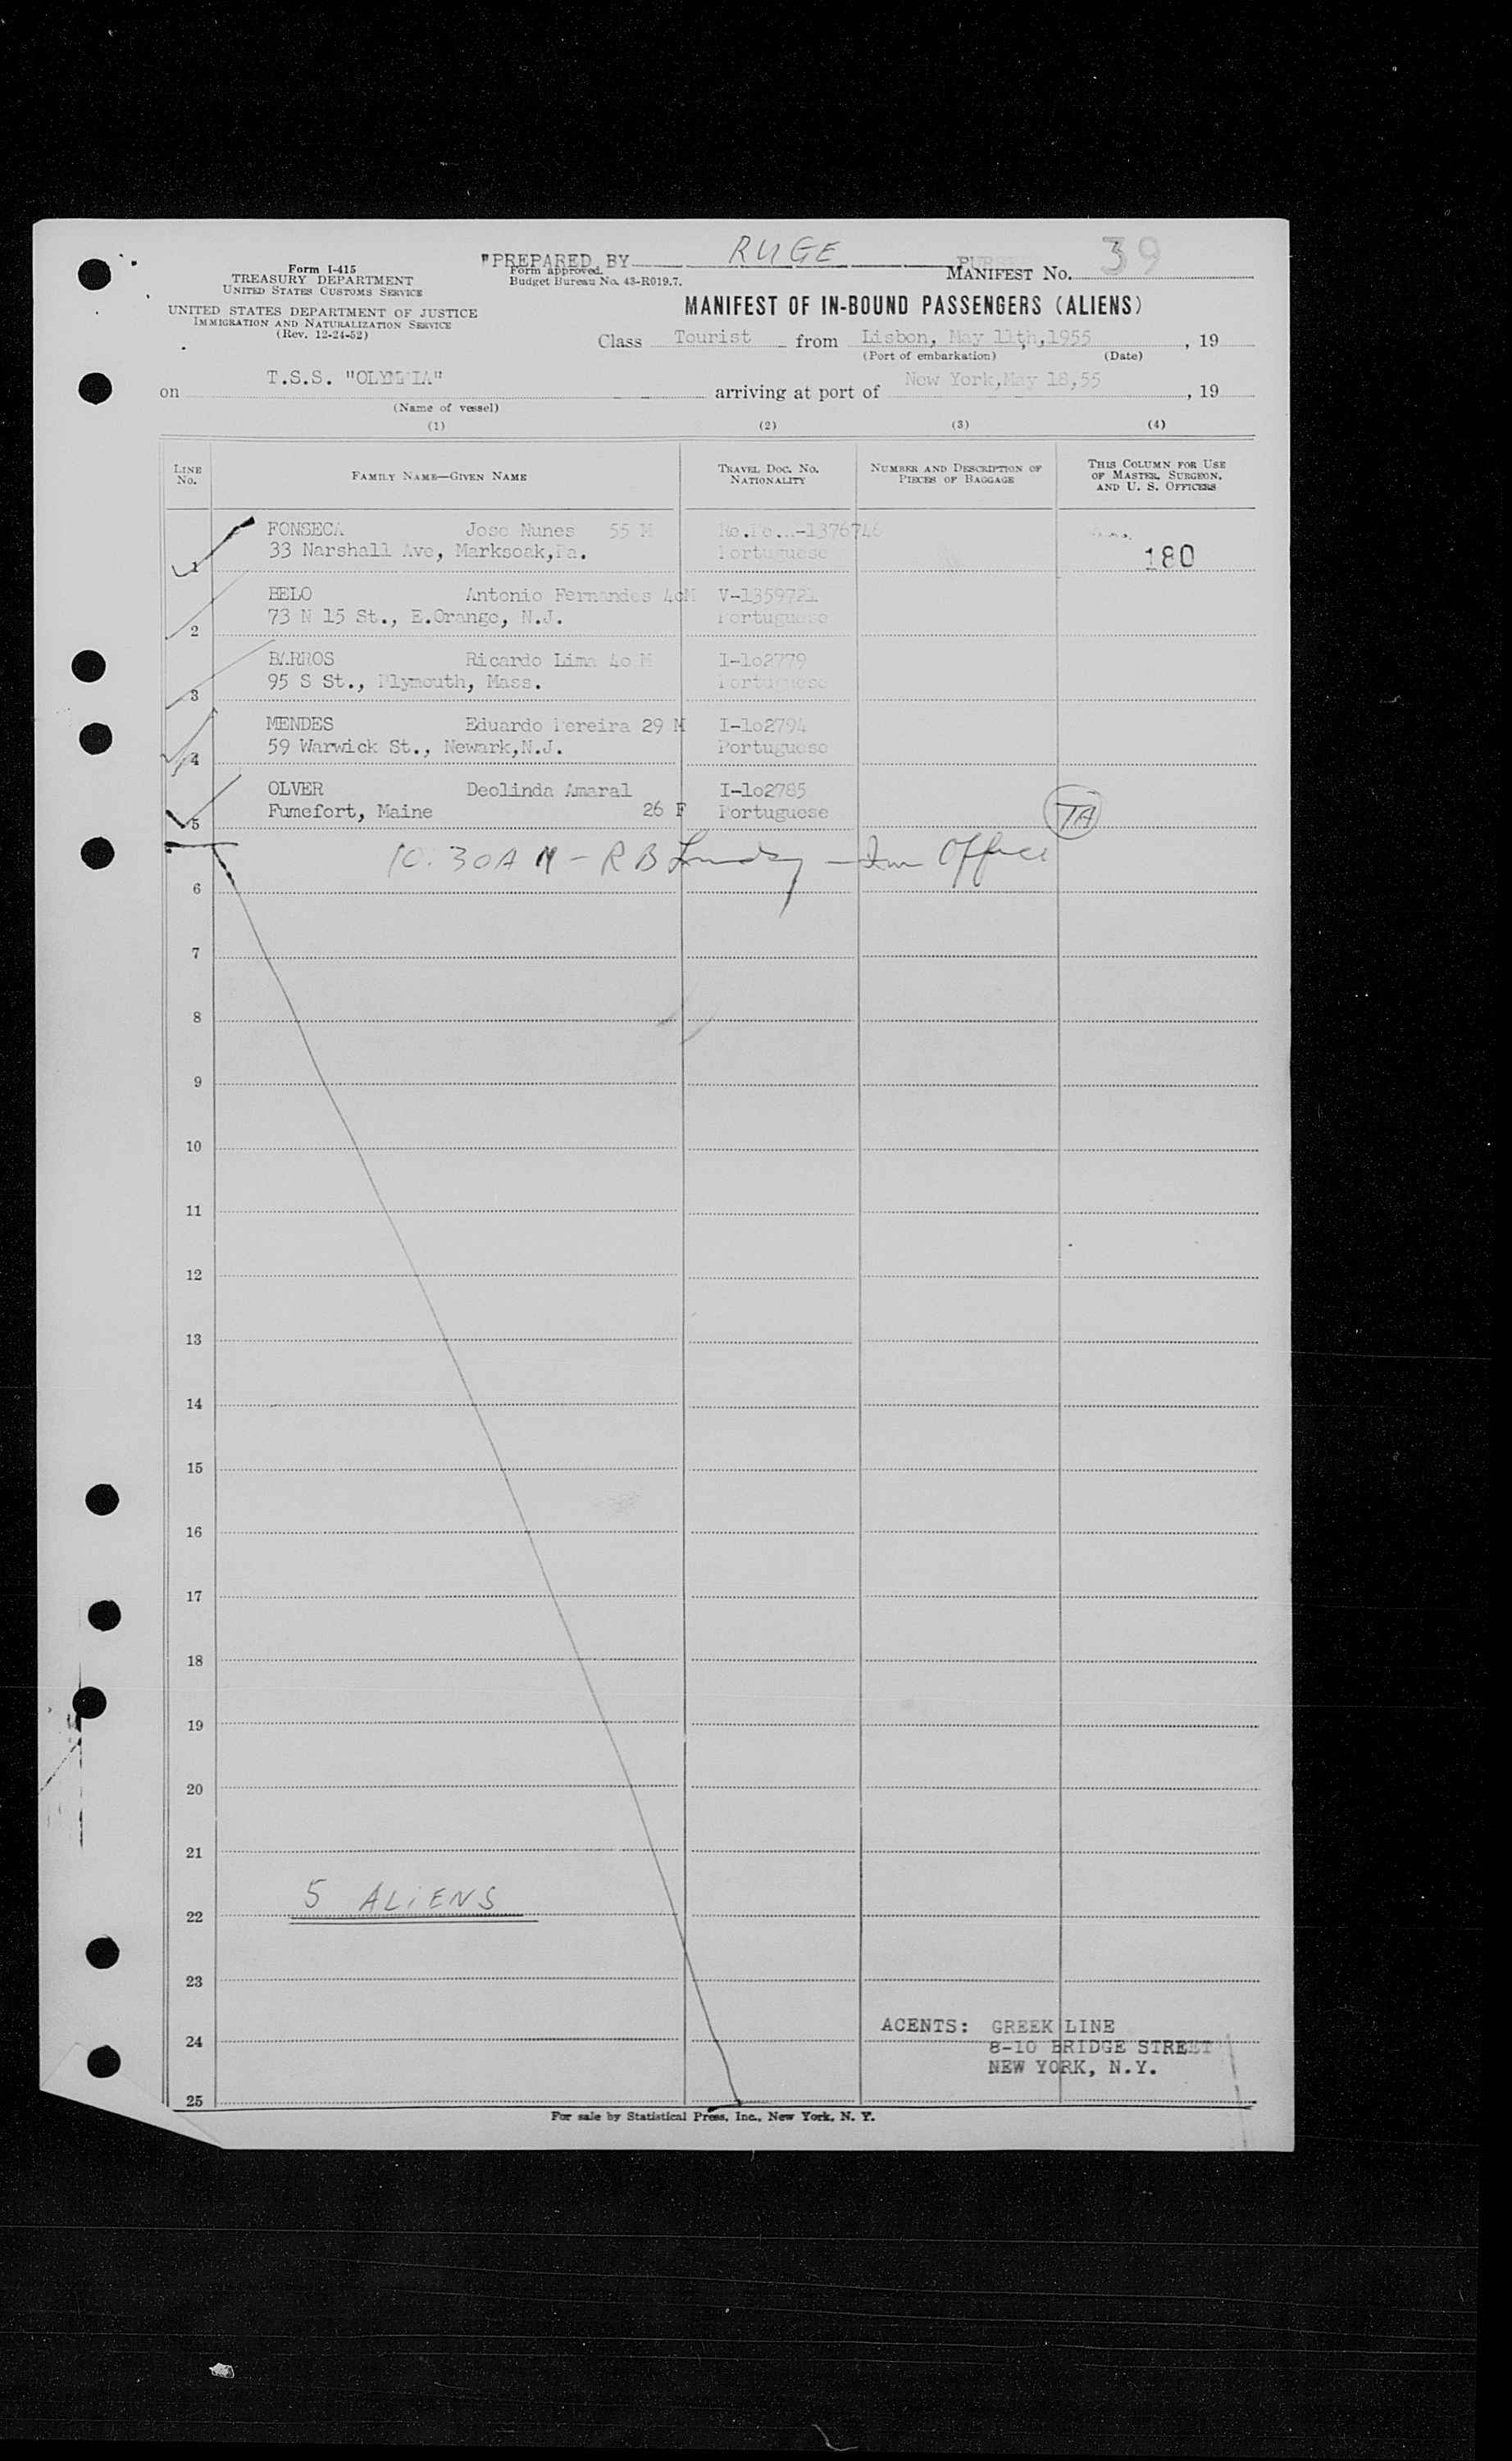 "PREPARED BY RUGE PURSER
Form I-415
TREASURY DEPARTMENT
UNITED STATES CUSTOMS SERVICE
UNITED STATES DEPARTMENT OF JUSTICE
IMMIGRATION AND NATURALIZATION SERVICE
(Rev. 12-24-52)
Form approved.
Budget Bureau No. 43-R019.7.
MANIFEST No. 39
MANIFEST OF IN-BOUND PASSENGERS (ALIENS)
Class Tourist from Lisbon, May 11th,1955, 19
(Port of embarkation) (Date)
on T.S.S. "OLYMPIA" arriving at port of New York,May 18,55, 19
(Name of vessel)
(1) (2) (3) (4)
LINE No. FAMILY NAME—GIVEN NAME TRAVEL DOC. NO. NATIONALITY NUMBER AND DESCRIPTION OF PIECES OF BAGGAGE THIS COLUMN FOR USE OF MASTER, SURGEON, AND U. S. OFFICERS
FONSECA Jose Nunes 55 M -1376746
1 33 Narshall Ave, Marksoak,Pa. Portuguese 180
BELO Antonio Fernandes 4oM V-1359721
2 73 N 15 St., E.Orange, N.J. Portuguese
BARROS Ricardo Lima 4o M I-1o2779
3 95 S St., Plymouth, Mass. Portuguese
MENDES Eduardo Pereira 29 M I-1o2794
4 59 Warwick St., Newark,N.J. Portuguese
OLVER Deolinda Amaral I-1o2785
5 Fumefort, Maine 26 F Portuguese TA
6 10:30AM - R B Imm Officer
7
8
9
10
11
12
13
14
15
16
17
18
19
20
21
22 5 ALIENS
23
ACENTS: GREEK LINE
24 8-10 BRIDGE STREET
NEW YORK, N.Y.
25
For sale by Statistical Press, Inc., New York, N. Y.